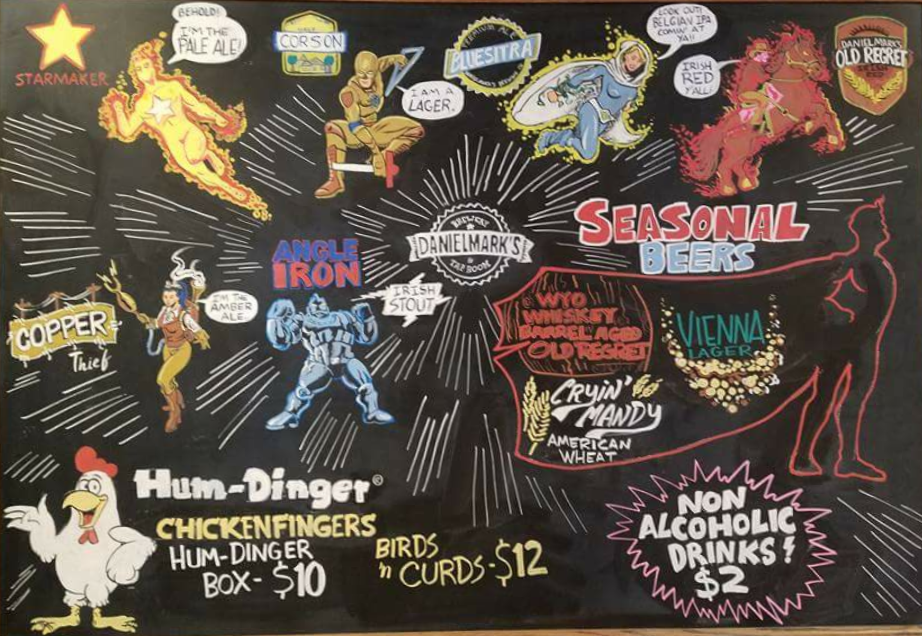 STARMAKER
BEHOLD!
I'M THE
PALE ALE!
CORSON
I AM A
LAGER.
BLUESITRA
LOOK OUT!
BELGIAN IPA
COMIN' AT
YA!!
IRISH
RED
Y'ALL!
DANIELMARK'S
OLD REGRET
BREWERY
DANIELMARK'S
& TAP ROOM
COPPER
Thief
I'M THE
AMBER
ALE.
ANGLE
IRON
IRISH
STOUT
SEASONAL
BEERS
WYO
WHISKEY
BARREL AGED
OLD REGRET
VIENNA
LAGER
CRYIN'
MANDY
AMERICAN
WHEAT
HUM-DINGER
CHICKENFINGERS
HUM-DINGER
BOX- $10
BIRDS
'n CURDS-$12
NON
ALCOHOLIC
DRINKS!
$2